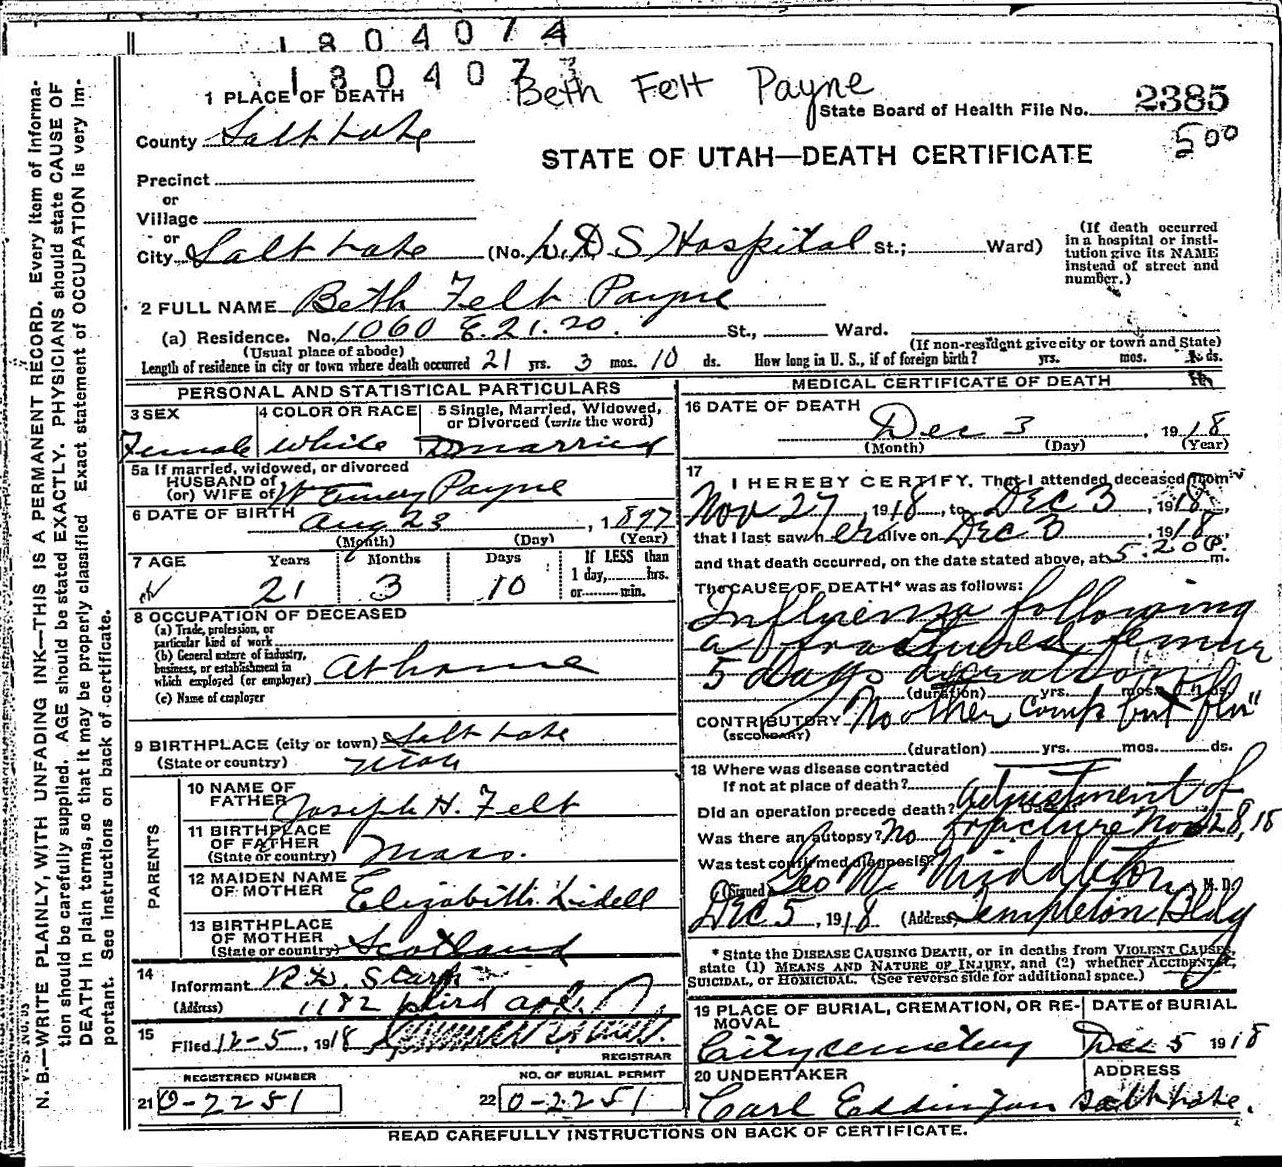 1804074
1804073
Beth Felt Payne
State Board of Health File No. 2385
500
STATE OF UTAH—DEATH CERTIFICATE
1 PLACE OF DEATH
County Salt Lake
Precinct
or
Village
or
City Salt Lake (No. L.D.S Hospital St.; Ward)
(If death occurred in a hospital or insti-
tution give its NAME
instead of street and
number.)
2 FULL NAME Beth Felt Payne
(a) Residence. No. 1060 E. 21. 20. St., Ward.
(Usual place of abode) (If non-resident give city or town and State)
Length of residence in city or town where death occurred 21 yrs. 3 mos. 10 ds. How long in U. S., if of foreign birth? yrs. mos. ds.
PERSONAL AND STATISTICAL PARTICULARS
3 SEX Female
4 COLOR OR RACE White
5 Single, Married, Widowed,
or Divorced (write the word)
married
5a If married, widowed, or divorced
HUSBAND of
(or) WIFE of Payne
6 DATE OF BIRTH
Aug 23, 1897
(Month) (Day) (Year)
7 AGE Years Months Days If LESS than
1 day, hrs.
or min.
21 3 10
8 OCCUPATION OF DECEASED
(a) Trade, profession, or
particular kind of work
(b) General nature of industry,
business, or establishment in
which employed (or employer) At home
(c) Name of employer
9 BIRTHPLACE (city or town) Salt Lake
(State or country) Utah
PARENTS
10 NAME OF
FATHER Joseph H. Felt
11 BIRTHPLACE
OF FATHER
(State or country) Mass.
12 MAIDEN NAME
OF MOTHER Elizabeth Lidell
13 BIRTHPLACE
OF MOTHER
(State or country) Scotland
14
Informant
(Address) 1182 third ave.
15
Filed 12-5, 1918
REGISTRAR
REGISTERED NUMBER
21 0-2251
NO. OF BURIAL PERMIT
22 0-2251
MEDICAL CERTIFICATE OF DEATH
16 DATE OF DEATH
Dec 3, 1918
(Month) (Day) (Year)
17
I HEREBY CERTIFY, That I attended deceased from
Nov 27, 1918, to Dec 3, 1918,
that I last saw her alive on Dec 3, 1918,
and that death occurred, on the date stated above, at 5.20 P. m.
The CAUSE OF DEATH* was as follows:
Influenza following
a fractured femur
5 days duration
(duration) yrs. mos. ds.
CONTRIBUTORY No other comp but "flu"
(SECONDARY)
(duration) yrs. mos. ds.
18 Where was disease contracted
If not at place of death?
Did an operation precede death? adjustment of
Was there an autopsy? No fracture Nov 28, 18
Was test confirmed diagnosis?
(Signed) Geo W. Middleton, M. D.
Dec 5, 1918 (Address) Templeton Bldg
* State the DISEASE CAUSING DEATH, or in deaths from VIOLENT CAUSES,
state (1) MEANS AND NATURE OF INJURY, and (2) whether ACCIDENTAL,
SUICIDAL, or HOMICIDAL. (See reverse side for additional space.)
19 PLACE OF BURIAL, CREMATION, OR RE-
MOVAL
City cemetery
DATE OF BURIAL
Dec 5 1918
20 UNDERTAKER
Carl Eddington
ADDRESS
Salt Lake.
READ CAREFULLY INSTRUCTIONS ON BACK OF CERTIFICATE.
N. B.—WRITE PLAINLY, WITH UNFADING INK—THIS IS A PERMANENT RECORD. Every item of informa-
tion should be carefully supplied. AGE should be stated EXACTLY. PHYSICIANS should state CAUSE OF
DEATH in plain terms, so that it may be properly classified Exact statement of OCCUPATION is very im-
portant. See Instructions on back of certificate.